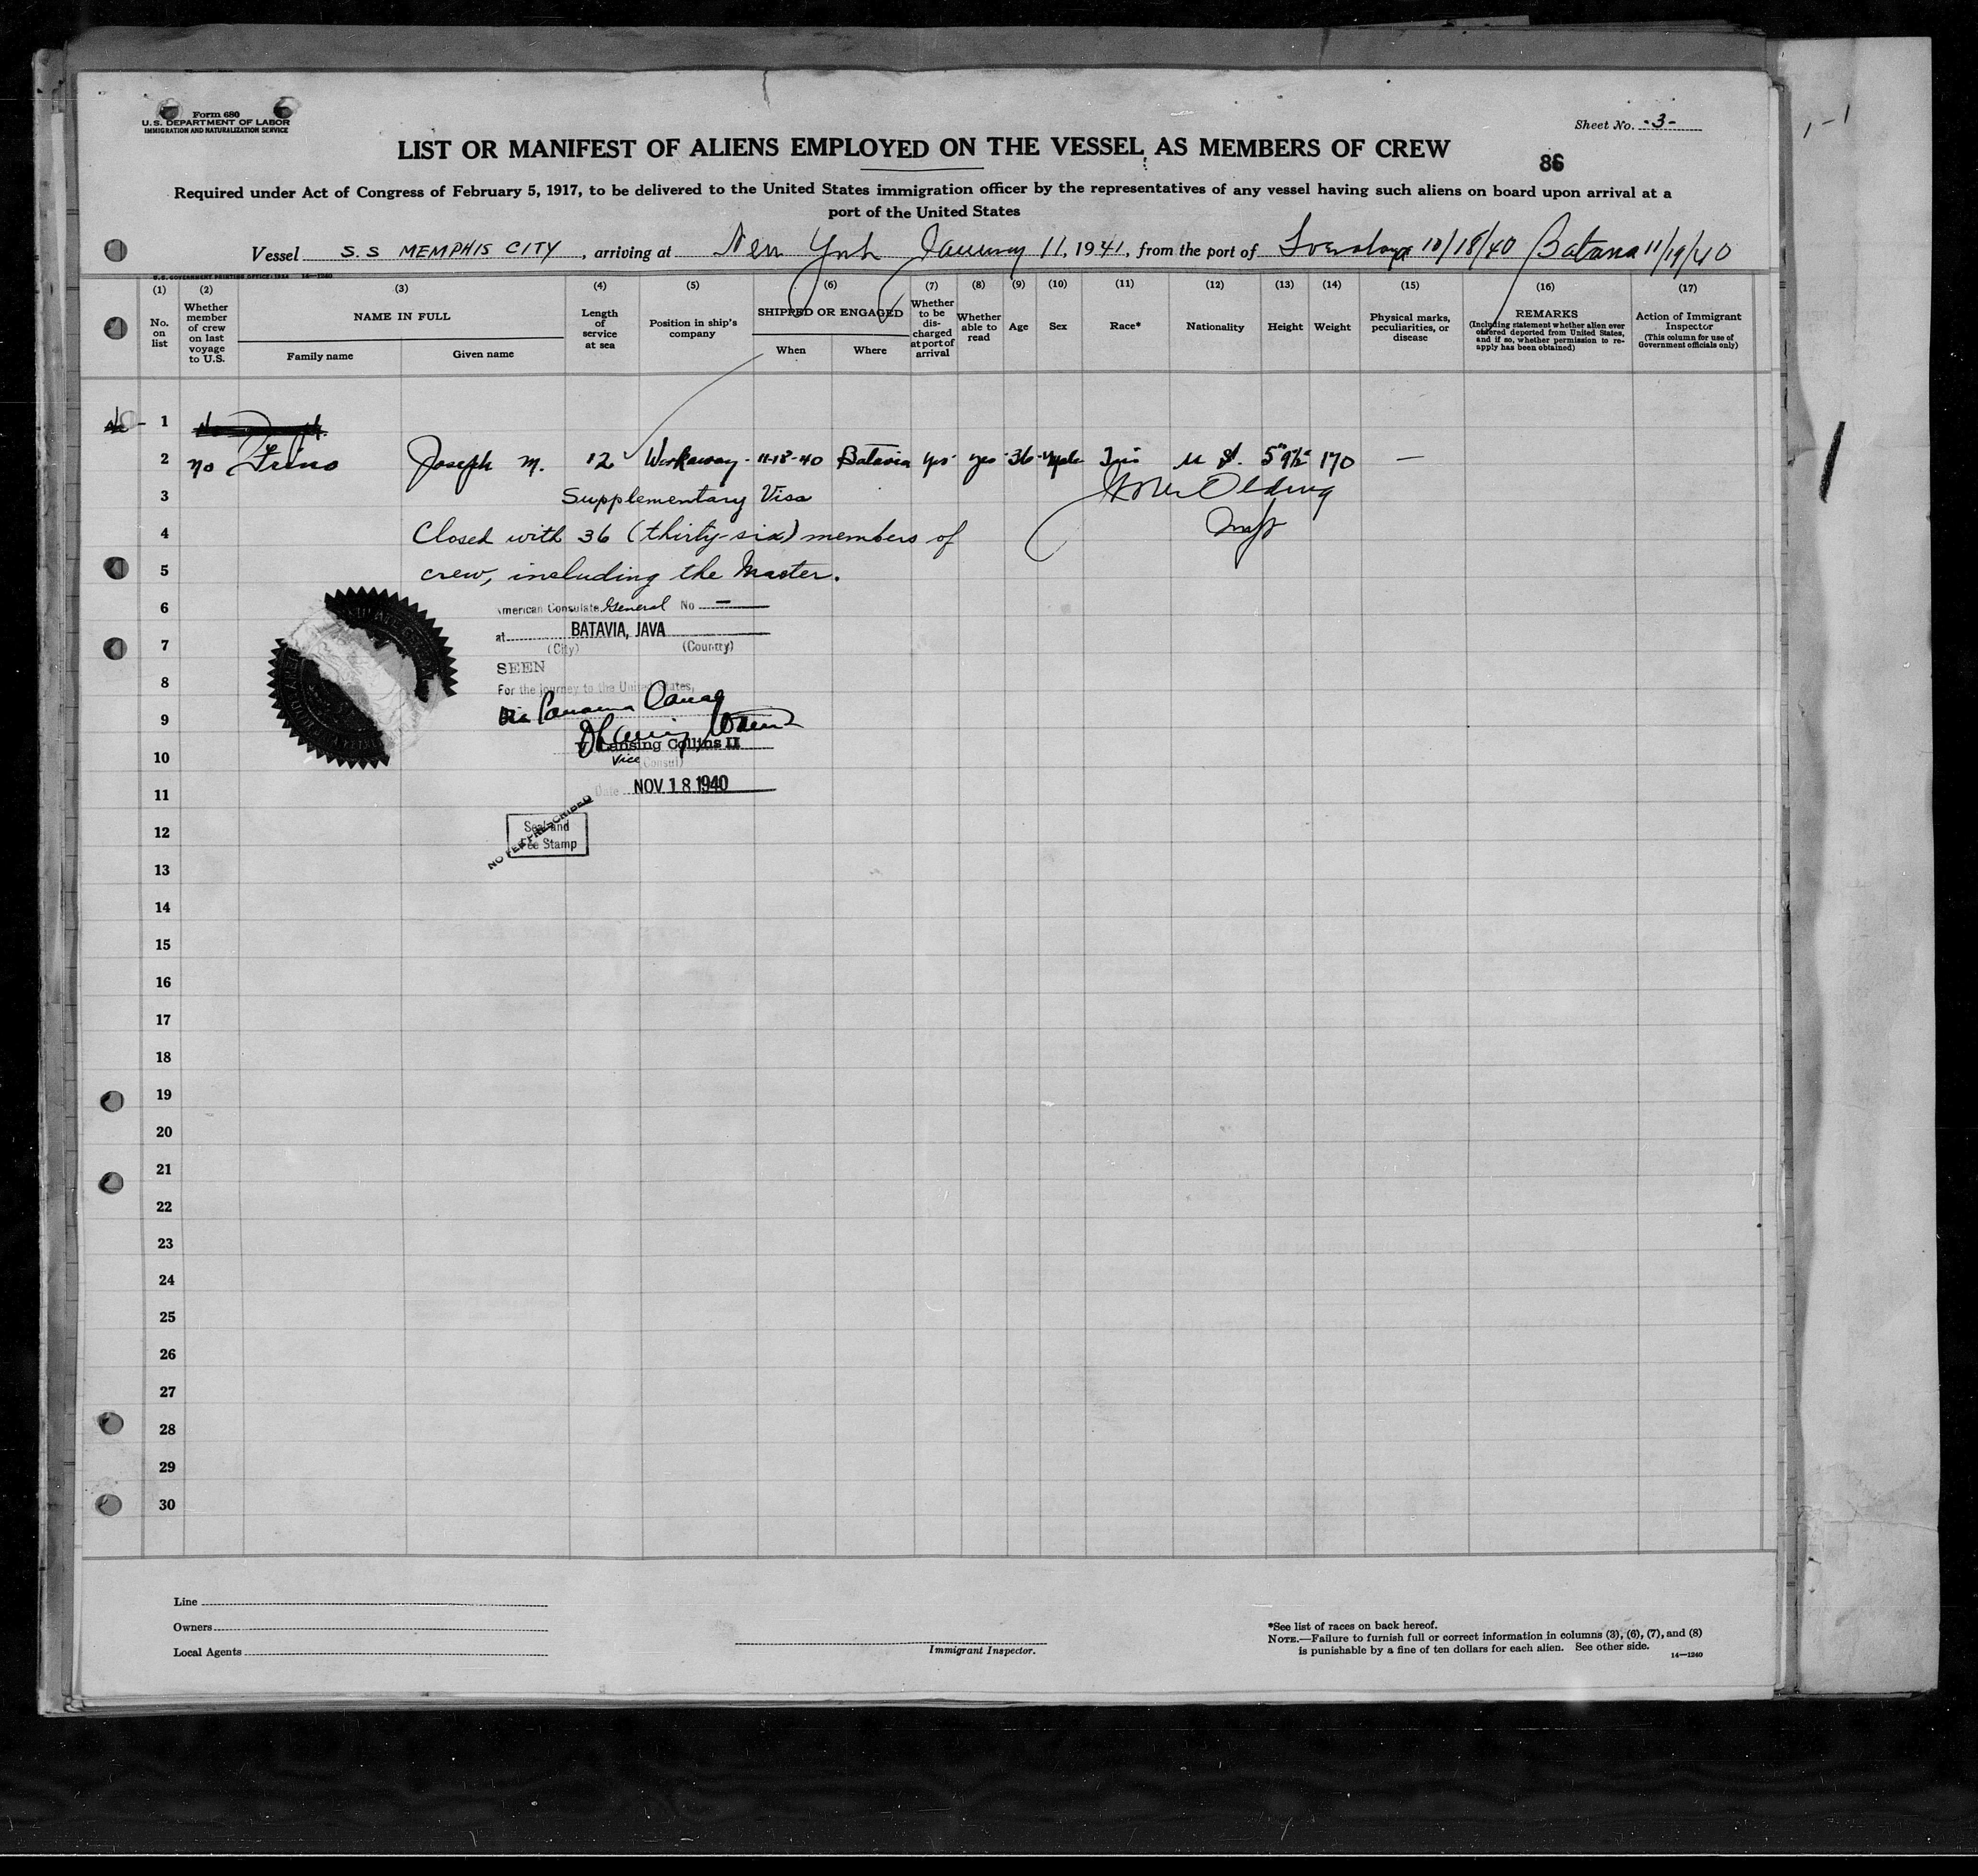 Form 680
U.S. DEPARTMENT OF LABOR
IMMIGRATION AND NATURALIZATION SERVICE
Sheet No. -3-
LIST OR MANIFEST OF ALIENS EMPLOYED ON THE VESSEL AS MEMBERS OF CREW
86
Required under Act of Congress of February 5, 1917, to be delivered to the United States immigration officer by the representatives of any vessel having such aliens on board upon arrival at a
port of the United States
Vessel S.S MEMPHIS CITY, arriving at New York January 11, 1941, from the port of 10/18/40 Batavia 11/19/40
U.S. GOVERNMENT PRINTING OFFICE: 1934 14—1240
(1) (2) (3) (4) (5) (6) (7) (8) (9) (10) (11) (12) (13) (14) (15) (16) (17)
No. on list
Whether member of crew on last voyage to U.S.
NAME IN FULL
Family name
Given name
Length of service at sea
Position in ship's company
SHIPPED OR ENGAGED
When
Where
Whether to be discharged at port of arrival
Whether able to read
Age
Sex
Race*
Nationality
Height
Weight
Physical marks, peculiarities, or disease
REMARKS
(Including statement whether alien ever ordered deported from United States, and if so, whether permission to reapply has been obtained)
Action of Immigrant Inspector
(This column for use of Government officials only)
1
2 no Joseph M. 12 Workaway 11-18-40 Batavia yes yes 36 Male U S. 5' 9½" 170 —
3 Supplementary Visa
4 Closed with 36 (thirty-six) members of
5 crew, including the Master.
6 American Consulate General No —
7 at BATAVIA, JAVA
(City) (Country)
SEEN
8 For the journey to the United States,
9 via Panama Canal
10 Lansing Collins II
Vice (Consul)
11 Date NOV 18 1940
12 Seal and
Fee Stamp
NO FEE PRESCRIBED
13
14
15
16
17
18
19
20
21
22
23
24
25
26
27
28
29
30
Line
Owners
Local Agents
Immigrant Inspector.
*See list of races on back hereof.
NOTE.—Failure to furnish full or correct information in columns (3), (6), (7), and (8)
is punishable by a fine of ten dollars for each alien. See other side.
14—1240